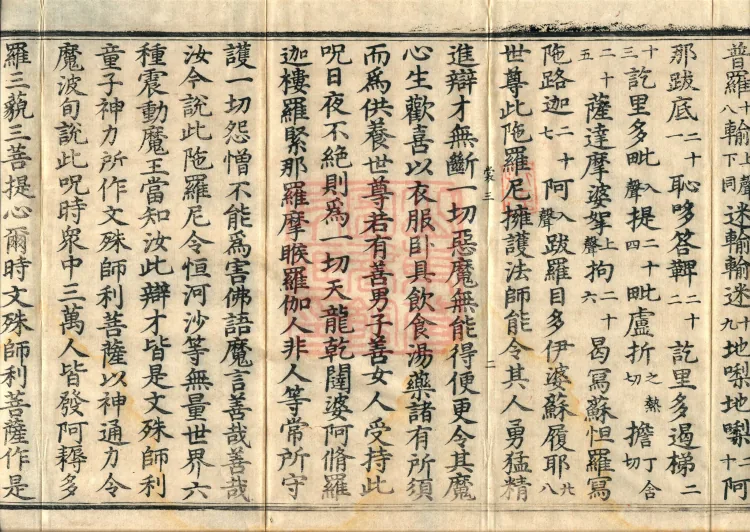 普羅十八輸上聲下同迷輸輸迷十九地唎地唎二十阿
那跋底二十一恥哆答鞞二十二訖里多遏梯二
十三訖里多毗入聲提二十四毗盧折之熱切擔丁舍切
二十五薩達摩婆拏上聲拘二十六曷寫蘇怛羅寫
陁路迦二十七阿入聲跋羅目多伊婆蘇履耶二十八
世尊此陁羅尼擁護法師能令其人勇猛精
裳三 二
進辯才無斷一切惡魔無能得便更令其魔
心生歡喜以衣服卧具飲食湯藥諸有所須
而爲供養世尊若有善男子善女人受持此
呪日夜不絕則爲一切天龍乾闥婆阿脩羅
迦樓羅緊那羅摩睺羅伽人非人等常所守
護一切怨憎不能爲害佛語魔言善哉善哉
汝今說此陁羅尼令恒河沙等無量世界六
種震動魔王當知汝此辯才皆是文殊師利
童子神力所作文殊師利菩薩以神通力令
魔波旬說此呪時衆中三萬人皆發阿耨多
羅三藐三菩提心爾時文殊師利菩薩作是